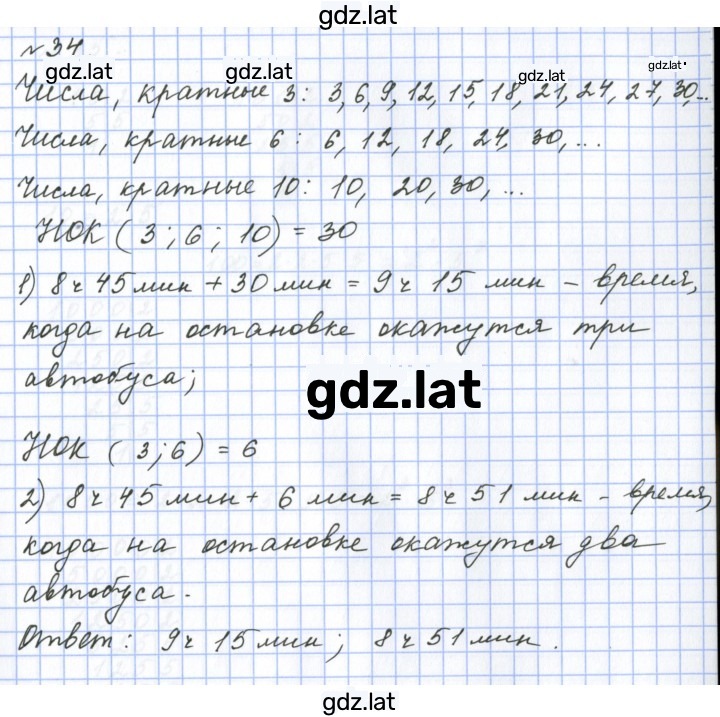 gdz.lat
№34
gdz.lat gdz.lat gdz.lat
Числа, кратные 3: 3, 6, 9, 12, 15, 18, 21, 24, 27, 30,...
Числа, кратные 6: 6, 12, 18, 24, 30, ...
Числа, кратные 10: 10, 20, 30, ...
НОК (3; 6; 10) = 30
1) 8 ч 45 мин + 30 мин = 9 ч 15 мин - время,
когда на остановке окажутся три
автобуса;
gdz.lat
НОК (3; 6) = 6
2) 8 ч 45 мин + 6 мин = 8 ч 51 мин - время,
когда на остановке окажутся два
автобуса.
Ответ: 9 ч 15 мин; 8 ч 51 мин.
gdz.lat